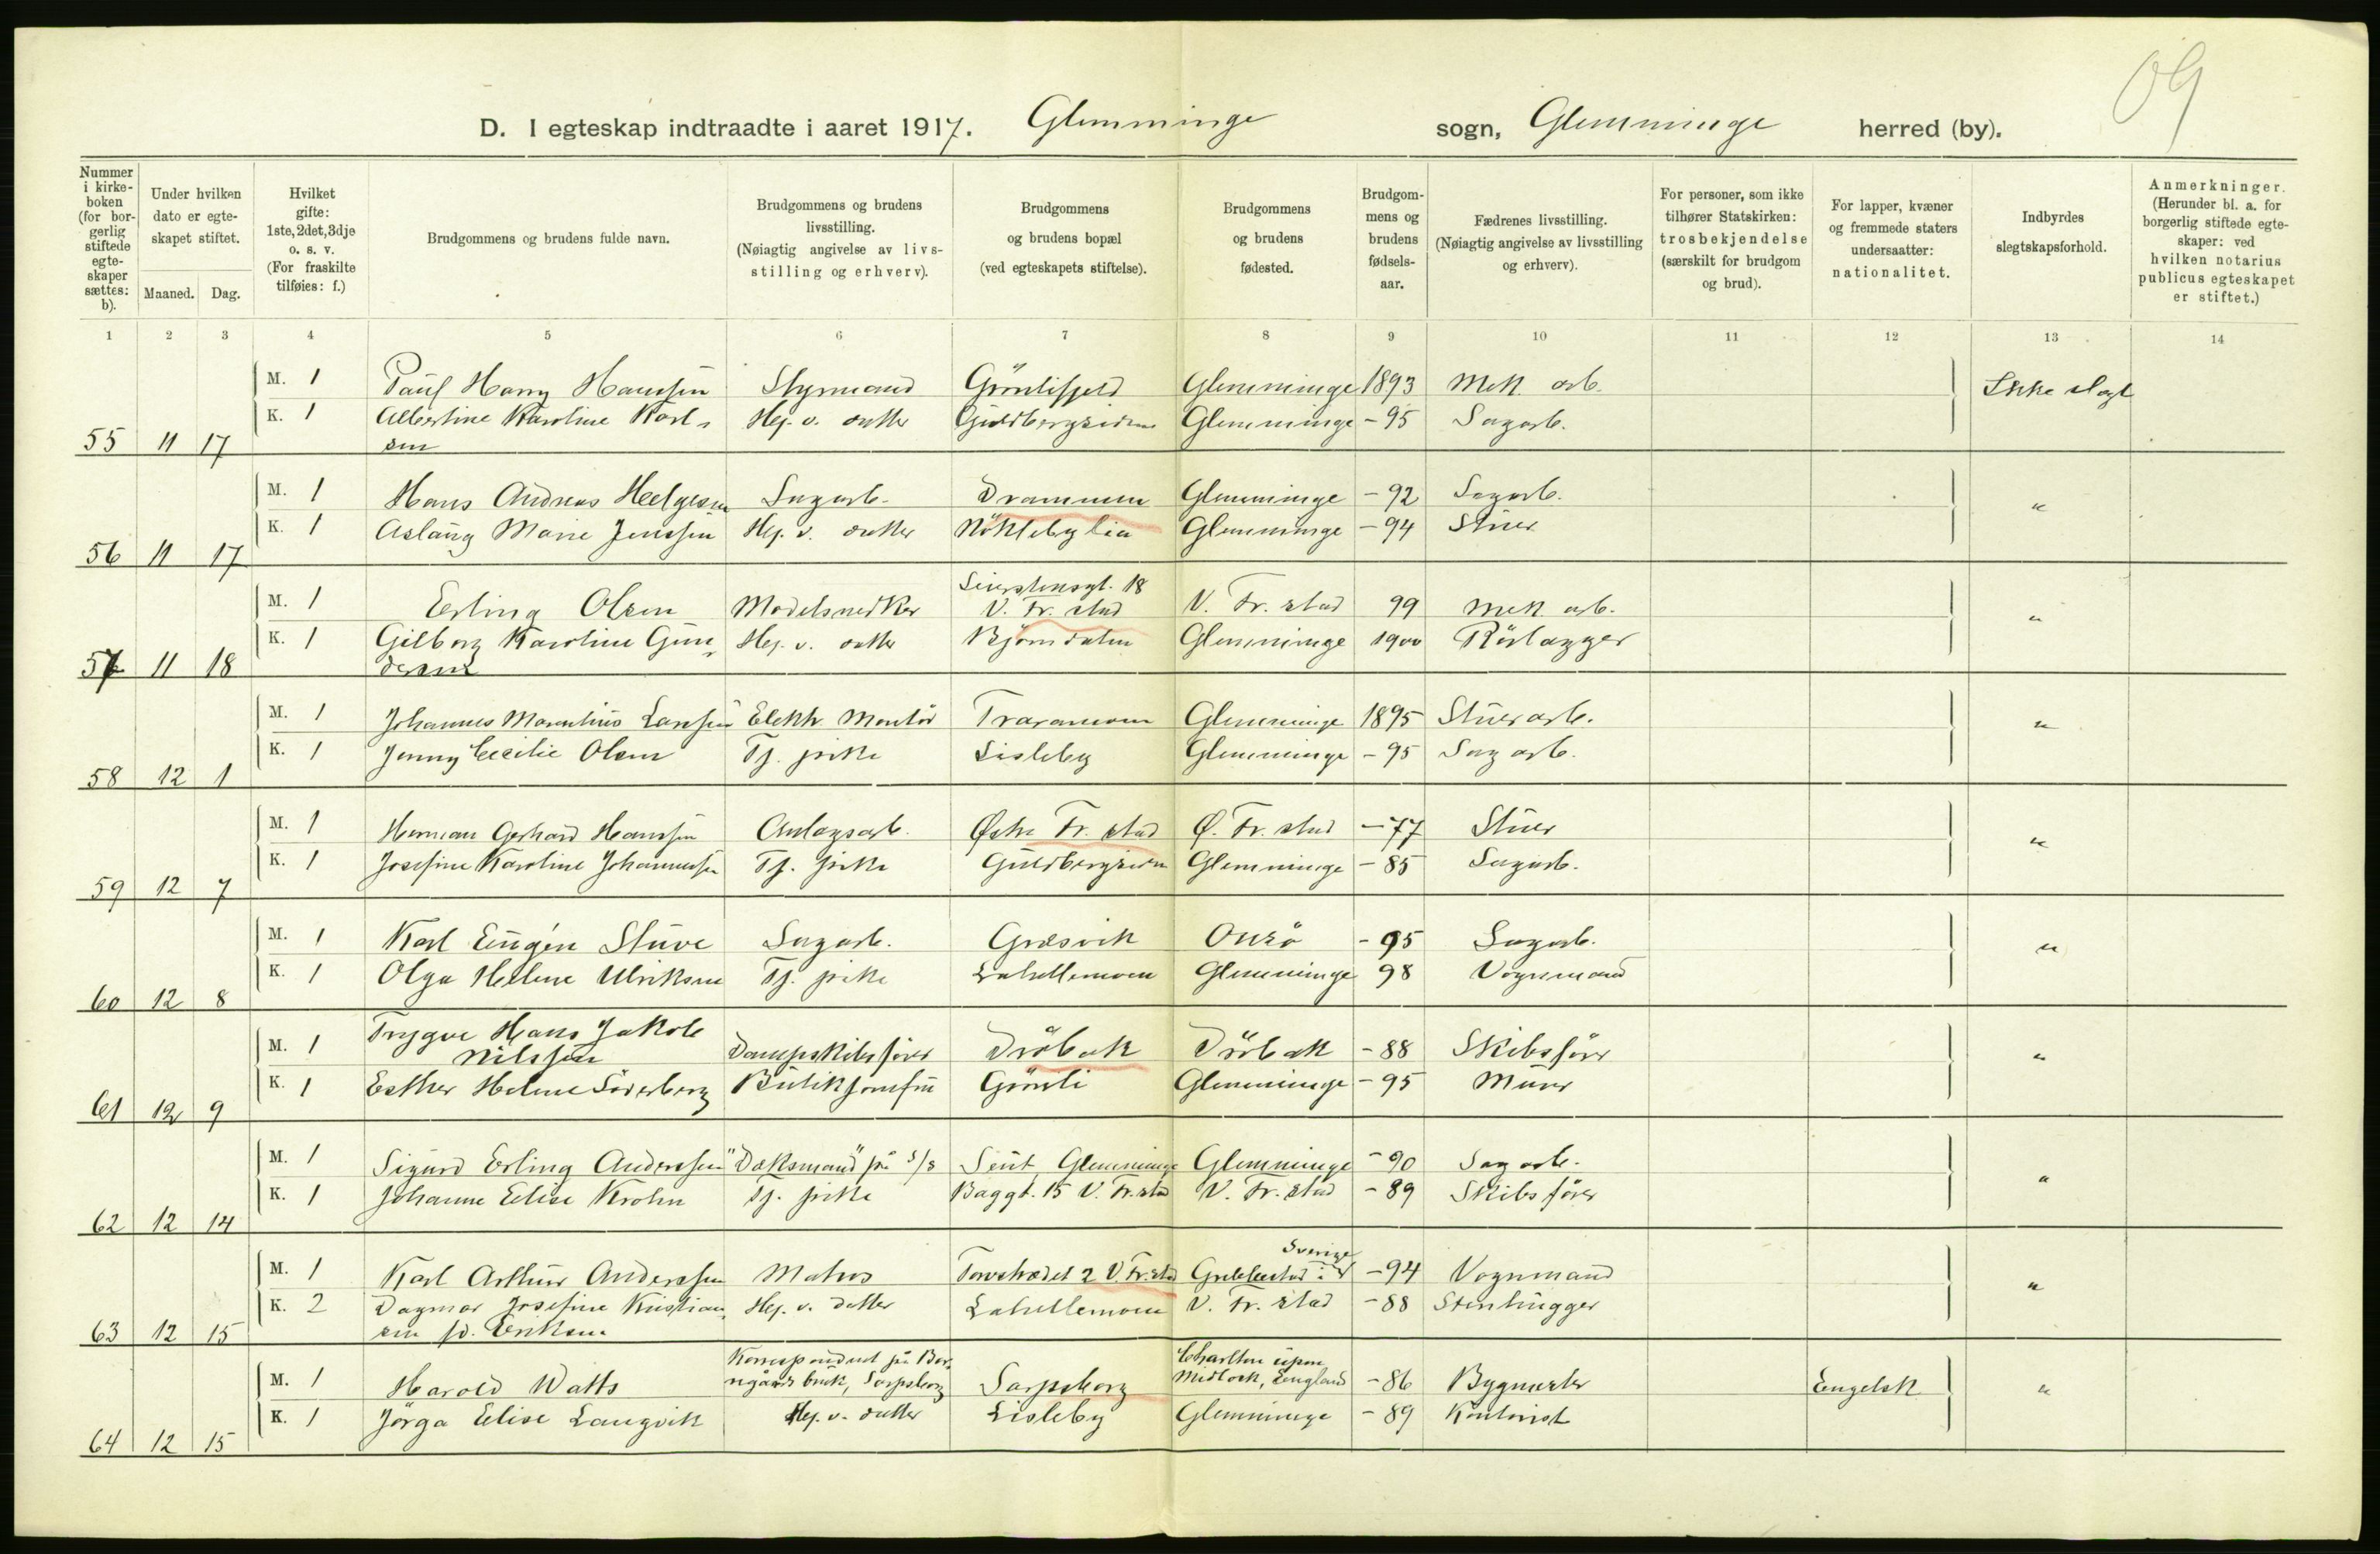 09
D. I egteskap indtraadte i aaret 1917. Glemminge sogn, Glemminge herred (by).
Nummer i kirkeboken (for borgerlig stiftede egteskaper sættes: b).
Under hvilken dato er egteskapet stiftet.
Maaned. Dag.
Hvilket gifte: 1ste, 2det, 3dje o. s. v. (For fraskilte tilføies: f.)
Brudgommens og brudens fulde navn.
Brudgommens og brudens livsstilling. (Nøiagtig angivelse av livsstilling og erhverv).
Brudgommens og brudens bopæl (ved egteskapets stiftelse).
Brudgommens og brudens fødested.
Brudgommens og brudens fødselsaar.
Fædrenes livsstilling. (Nøiagtig angivelse av livsstilling og erhverv).
For personer, som ikke tilhører Statskirken: trosbekjendelse (særskilt for brudgom og brud).
For lapper, kvæner og fremmede staters undersaatter: nationalitet.
Indbyrdes slegtskapsforhold.
Anmerkninger. (Herunder bl. a. for borgerlig stiftede egteskaper: ved hvilken notarius publicus egteskapet er stiftet.)
1 2 3 4 5 6 7 8 9 10 11 12 13 14
M. 1 Paul Harry Hanssen Styrmand Grönlifjeld Glemminge 1893 Mek. arb. Ikke slegt
K. 1 Albertine Karoline Karl- Hej. v. datter Guldbergsiden Glemminge - 95 Sagarb.
55 11 17 sen
M. 1 Hans Andreas Helgesen Sagarb. Drammen Glemminge - 92 Sagarb. "
K. 1 Aslaug Marie Jenssen Hej. v. datter Nöklebylia Glemminge - 94 Stuer
56 11 17
Seierstensgt. 18
M. 1 Erling Olsen Modelsnedker V. Fr. stad V. Fr. stad 99 Mek. arb. "
K. 1 Gilborg Karoline Gun- Hej. v. datter Björndalen Glemminge 1900 Rörlægger
57 11 18 dersen
M. 1 Johannes Marentius Larssen Elektr. Montör Traramoen Glemminge 1895 Stuerarb. "
K. 1 Jenny Cecilie Olsen Tj. pike Lisleby Glemminge - 95 Sag arb.
58 12 1
M. 1 Herman Gerhard Hanssen Anlægsarb. Østre Fr. stad Ø. Fr. stad - 77 Stuer "
K. 1 Josefine Karoline Johannessen Tj. pike Guldbergsiden Glemminge - 85 Sagarb.
59 12 7
M. 1 Karl Eugén Stuve Sagarb. Græsvik Onsö - 95 Sagarb. "
K. 1 Olga Helene Ulriksen Tj. pike Lahellemoen Glemminge 98 Vognmand
60 12 8
Trygve Hans Jakob
M. 1 Nilssen Dampskibsförer Dröbak Dröbak - 88 Skibsförer "
K. 1 Esther Helene Söderberg Butikjomfru Grönli Glemminge - 95 Murer
61 12 9
M. 1 Sigurd Erling Anderssen "Dæksmand" på s/s Glemminge Glemminge - 90 Sag arb. "
K. 1 Johanne Elise Krohn Tj. pike Baggt. 15 V. Fr. stad V. Fr. stad - 89 Skibsförer
62 12 14
Sverige
M. 1 Karl Arthur Anderssen Matros Torvstrædet 2 V. Fr. stad Grebbestad i - 94 Vognmand "
K. 2 Dagmar Josefine Kristian- Hej. v. datter Lahellemoen V. Fr. stad - 88 Stenhugger
63 12 15 sen fd. Eriksen
Korrespondent på Bor- Charlton upon
M. 1 Harold Watts regårds bruk, Sarpsborg Sarpsborg Midlock, England - 86 Bygmester Engelsk "
K. 1 Jörga Elise Langvik Hej. v. datter Lisleby Glemminge - 89 Kontorist
64 12 15